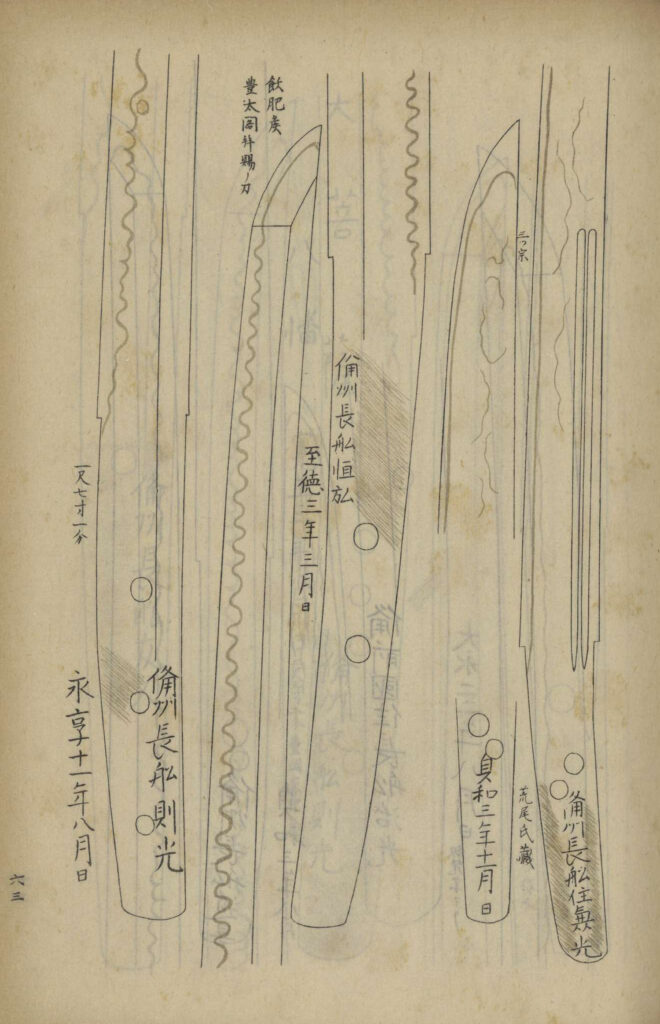 三ツ宗
備州長舩住兼光
荒尾氏蔵
貞和三年十一月日
備州長舩恒弘
至徳三年三月日
飫肥侯
豊太閤拝賜ノ刀
備州長舩則光
永享十一年八月日
一尺七寸一分
六三